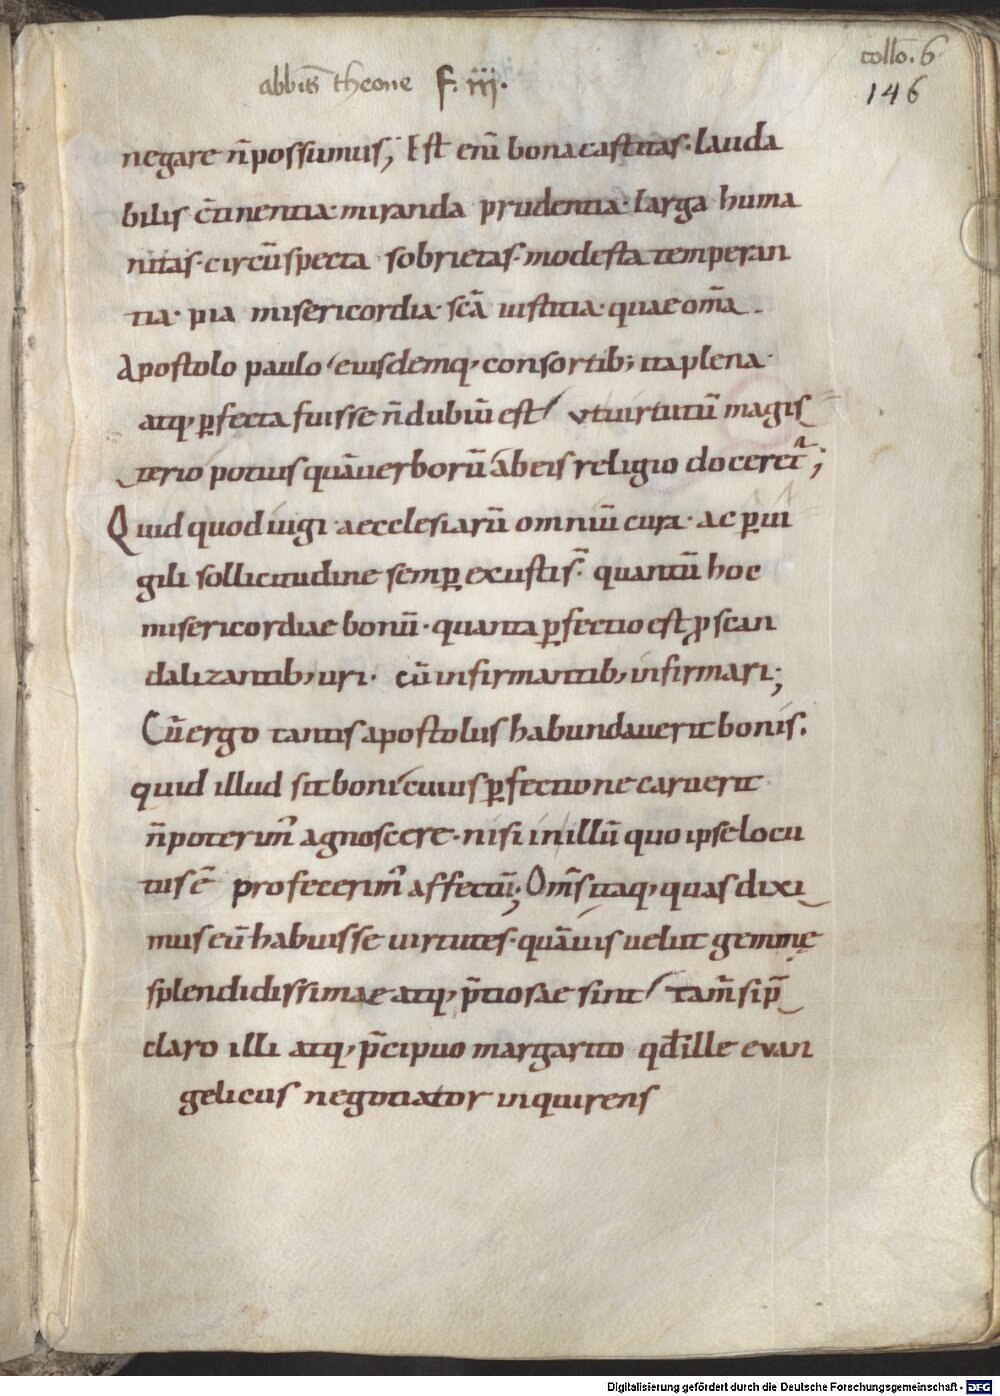 abbis theone F. iii.
collo. 6
146
negare n̄ possumus; Est eni bona castitas· lauda
bilis c̄tinentia· miranda prudentia· larga huma
nitas· circūspecta sobrietas· modesta temperan
tia· pia misericordia· sc̄a iustitia· quae om̄a
Apostolo paulo eiusdemq; consortib; ita plena
atq; ꝑfecta fuisse n̄ dubiū est ut uirtutū magis
terio potius quā uerborū ab eis religio doceret᷑;
Quid quod iugi aecclesiarū omniū cura· ac ꝑui
gili sollicitudine semꝑ exustis· quantū hoc
misericordiae bonū· quanta ꝑfectio est ꝓ scan
dalizantib; uri· cū infirmantib; infirmari;
Cū ergo tantis apostolus habundauerit bonis.
quid illud sit boni cuius ꝑfectione caruerit
n̄ poterim᷒ agnoscere· nisi in illū quo ipse locu
tus ē profecerim᷒ affectū; Om̄s itaq; quas dixi
mus eū habuisse uirtutes· quāuis uelut gemmę
splendidissimae atq; p̄tiosae sint tam̄ si p̄
claro illi atq; p̄cipuo margarito qđ ille evan
gelicus negotiator inquirens
Digitalisierung gefördert durch die Deutsche Forschungsgemeinschaft - DFG